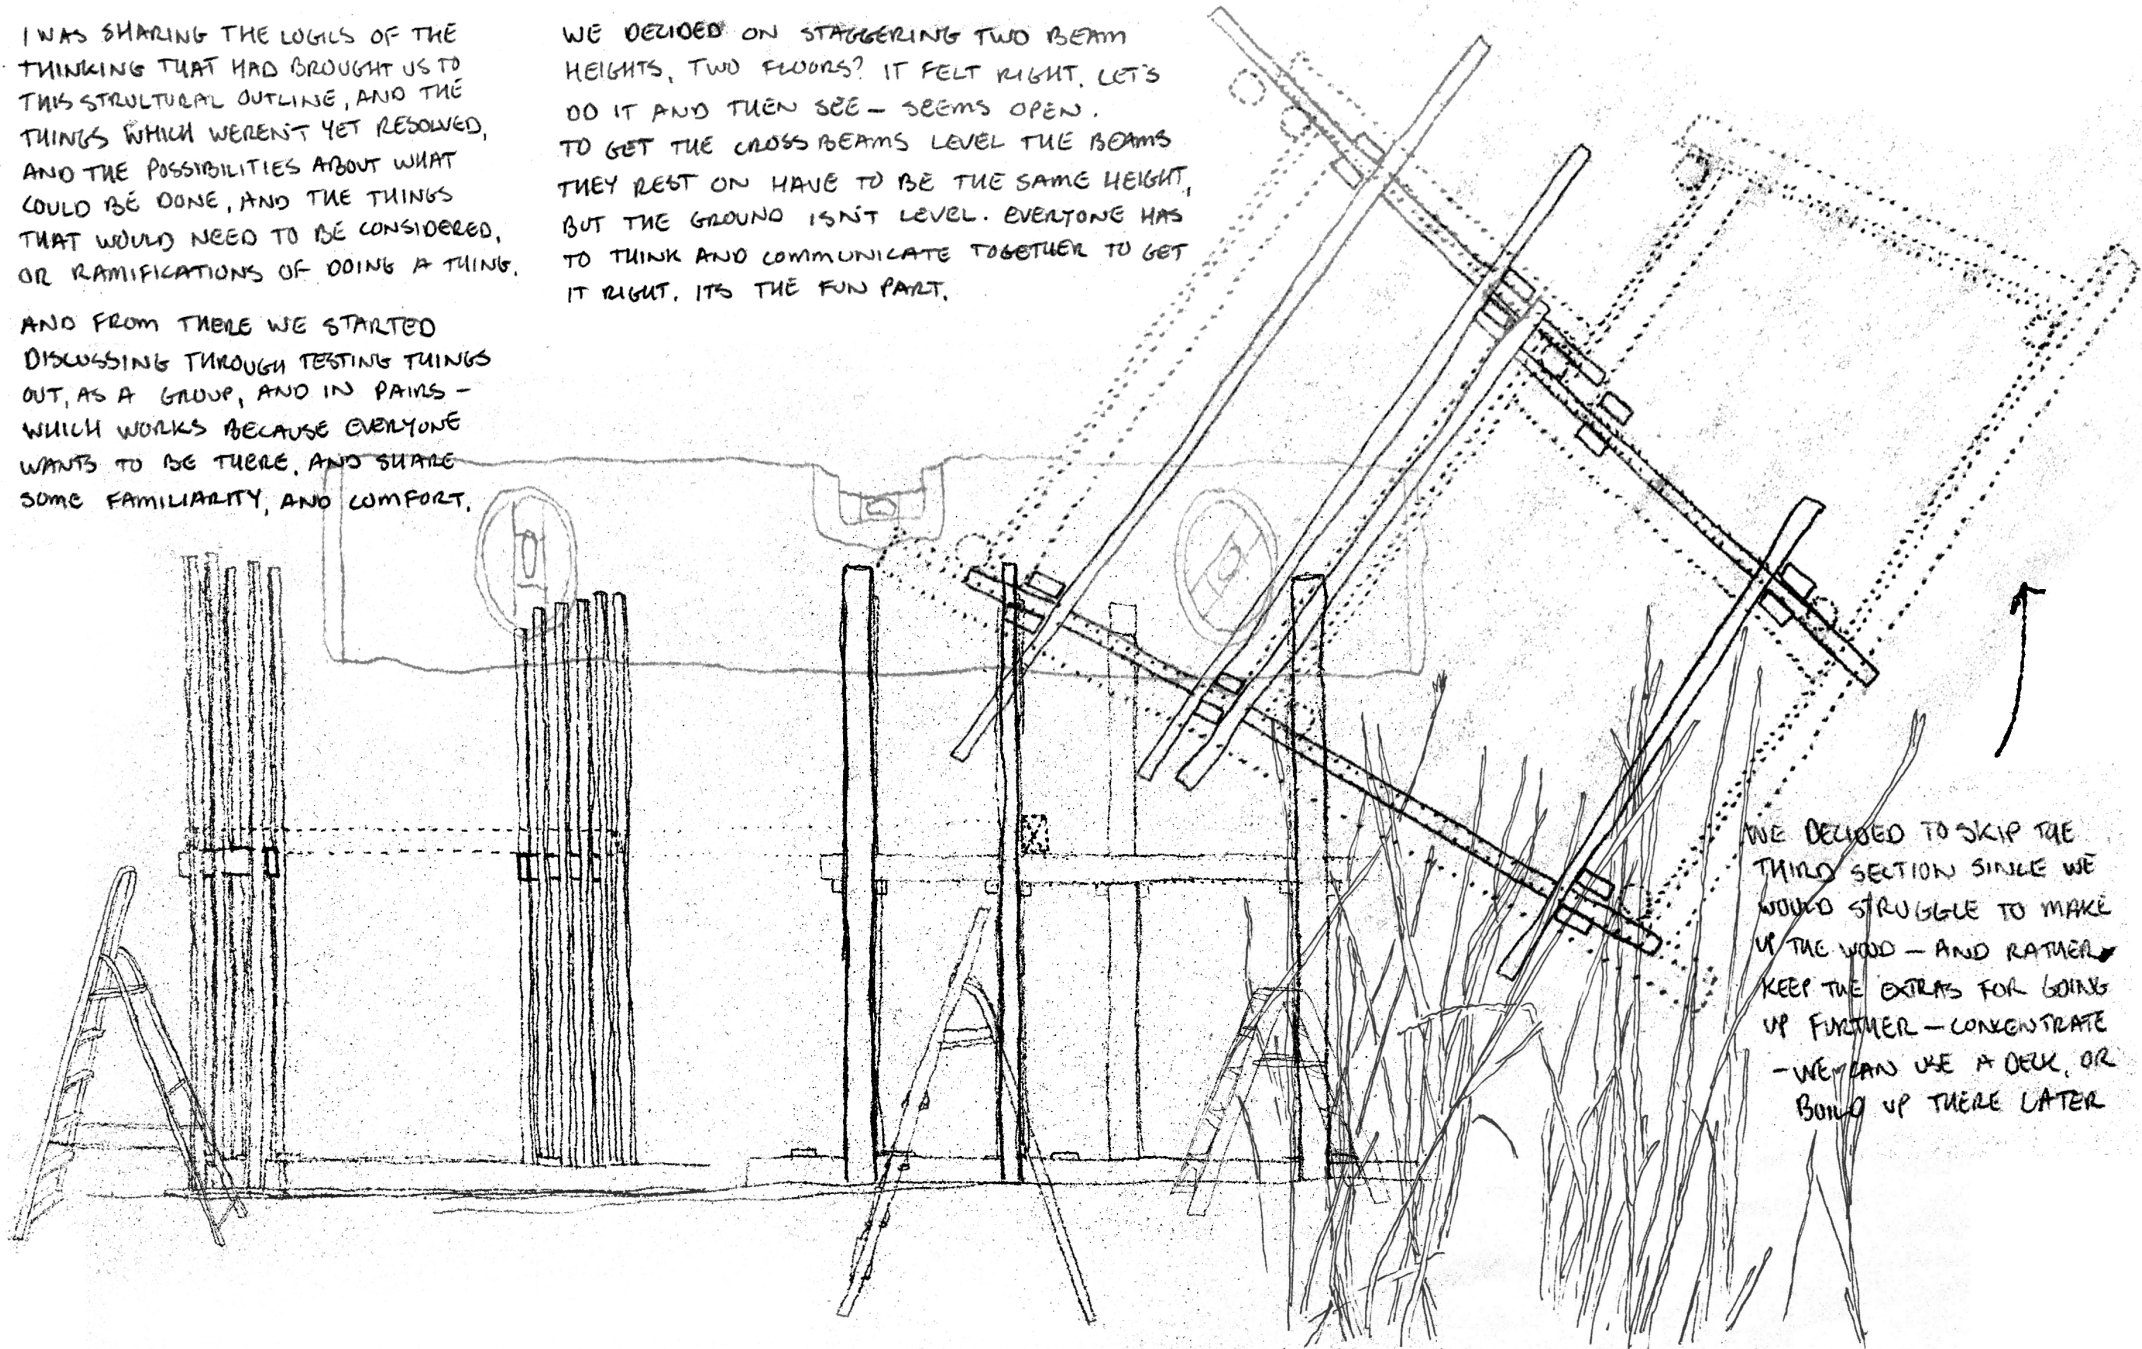 I WAS SHARING THE LOGICS OF THE
THINKING THAT HAD BROUGHT US TO
THIS STRUCTURAL OUTLINE, AND THE
THINGS WHICH WEREN'T YET RESOLVED,
AND THE POSSIBILITIES ABOUT WHAT
COULD BE DONE, AND THE THINGS
THAT WOULD NEED TO BE CONSIDERED,
OR RAMIFICATIONS OF DOING A THING.
AND FROM THERE WE STARTED
DISCUSSING THROUGH TESTING THINGS
OUT, AS A GROUP, AND IN PAIRS –
WHICH WORKS BECAUSE EVERYONE
WANTS TO BE THERE. AND SHARE
SOME FAMILIARITY, AND COMFORT.
WE DECIDED ON STAGGERING TWO BEAM
HEIGHTS, TWO FLOORS? IT FELT RIGHT. LET'S
DO IT AND THEN SEE – SEEMS OPEN.
TO GET THE CROSS BEAMS LEVEL THE BEAMS
THEY REST ON HAVE TO BE THE SAME HEIGHT,
BUT THE GROUND ISN'T LEVEL. EVERYONE HAS
TO THINK AND COMMUNICATE TOGETHER TO GET
IT RIGHT. ITS THE FUN PART.
WE DECIDED TO SKIP THE
THIRD SECTION SINCE WE
WOULD STRUGGLE TO MAKE
UP THE WOOD – AND RATHER
KEEP THE EXTRAS FOR GOING
UP FURTHER – CONCENTRATE
– WE CAN USE A DECK, OR
BUILD UP THERE LATER